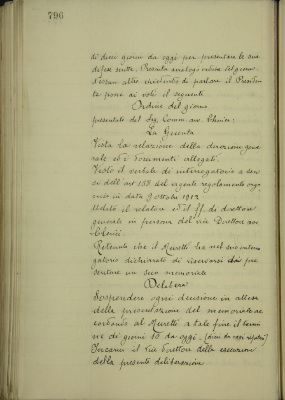 796
di dieci giorni da oggi per presentare le sue
difese scritte. Presenta analogo ordine del giorno.
Nessun altro chiedendo di parlare il Presiden-
te pone ai voti il seguente:
Ordine del giorno
presentato dal Sig. Comm. avv. Clerici:
La Giunta
Vista la relazione della direzione gene-
rale ed i documenti allegati.
Visto il verbale di interrogatorio a sen-
si dell'art. 158 del vigente regolamento orga-
nico in data 9 ottobre 1912
Udito il relatore ed il ff. di direttore
generale in persona del vice Direttore avv.
Clerici.
Ritenuto che il Moretti ha nel suo interro-
gatorio dichiarato di riservarsi di pre-
sentare un suo memoriale
Delibera
Sospendere ogni decisione in attesa
della presentazione del memoriale ac-
cordando al Moretti a tale fine il termi-
ne di giorni 10 da oggi.
Incarica il vice direttore della esecuzione
della presente deliberazione